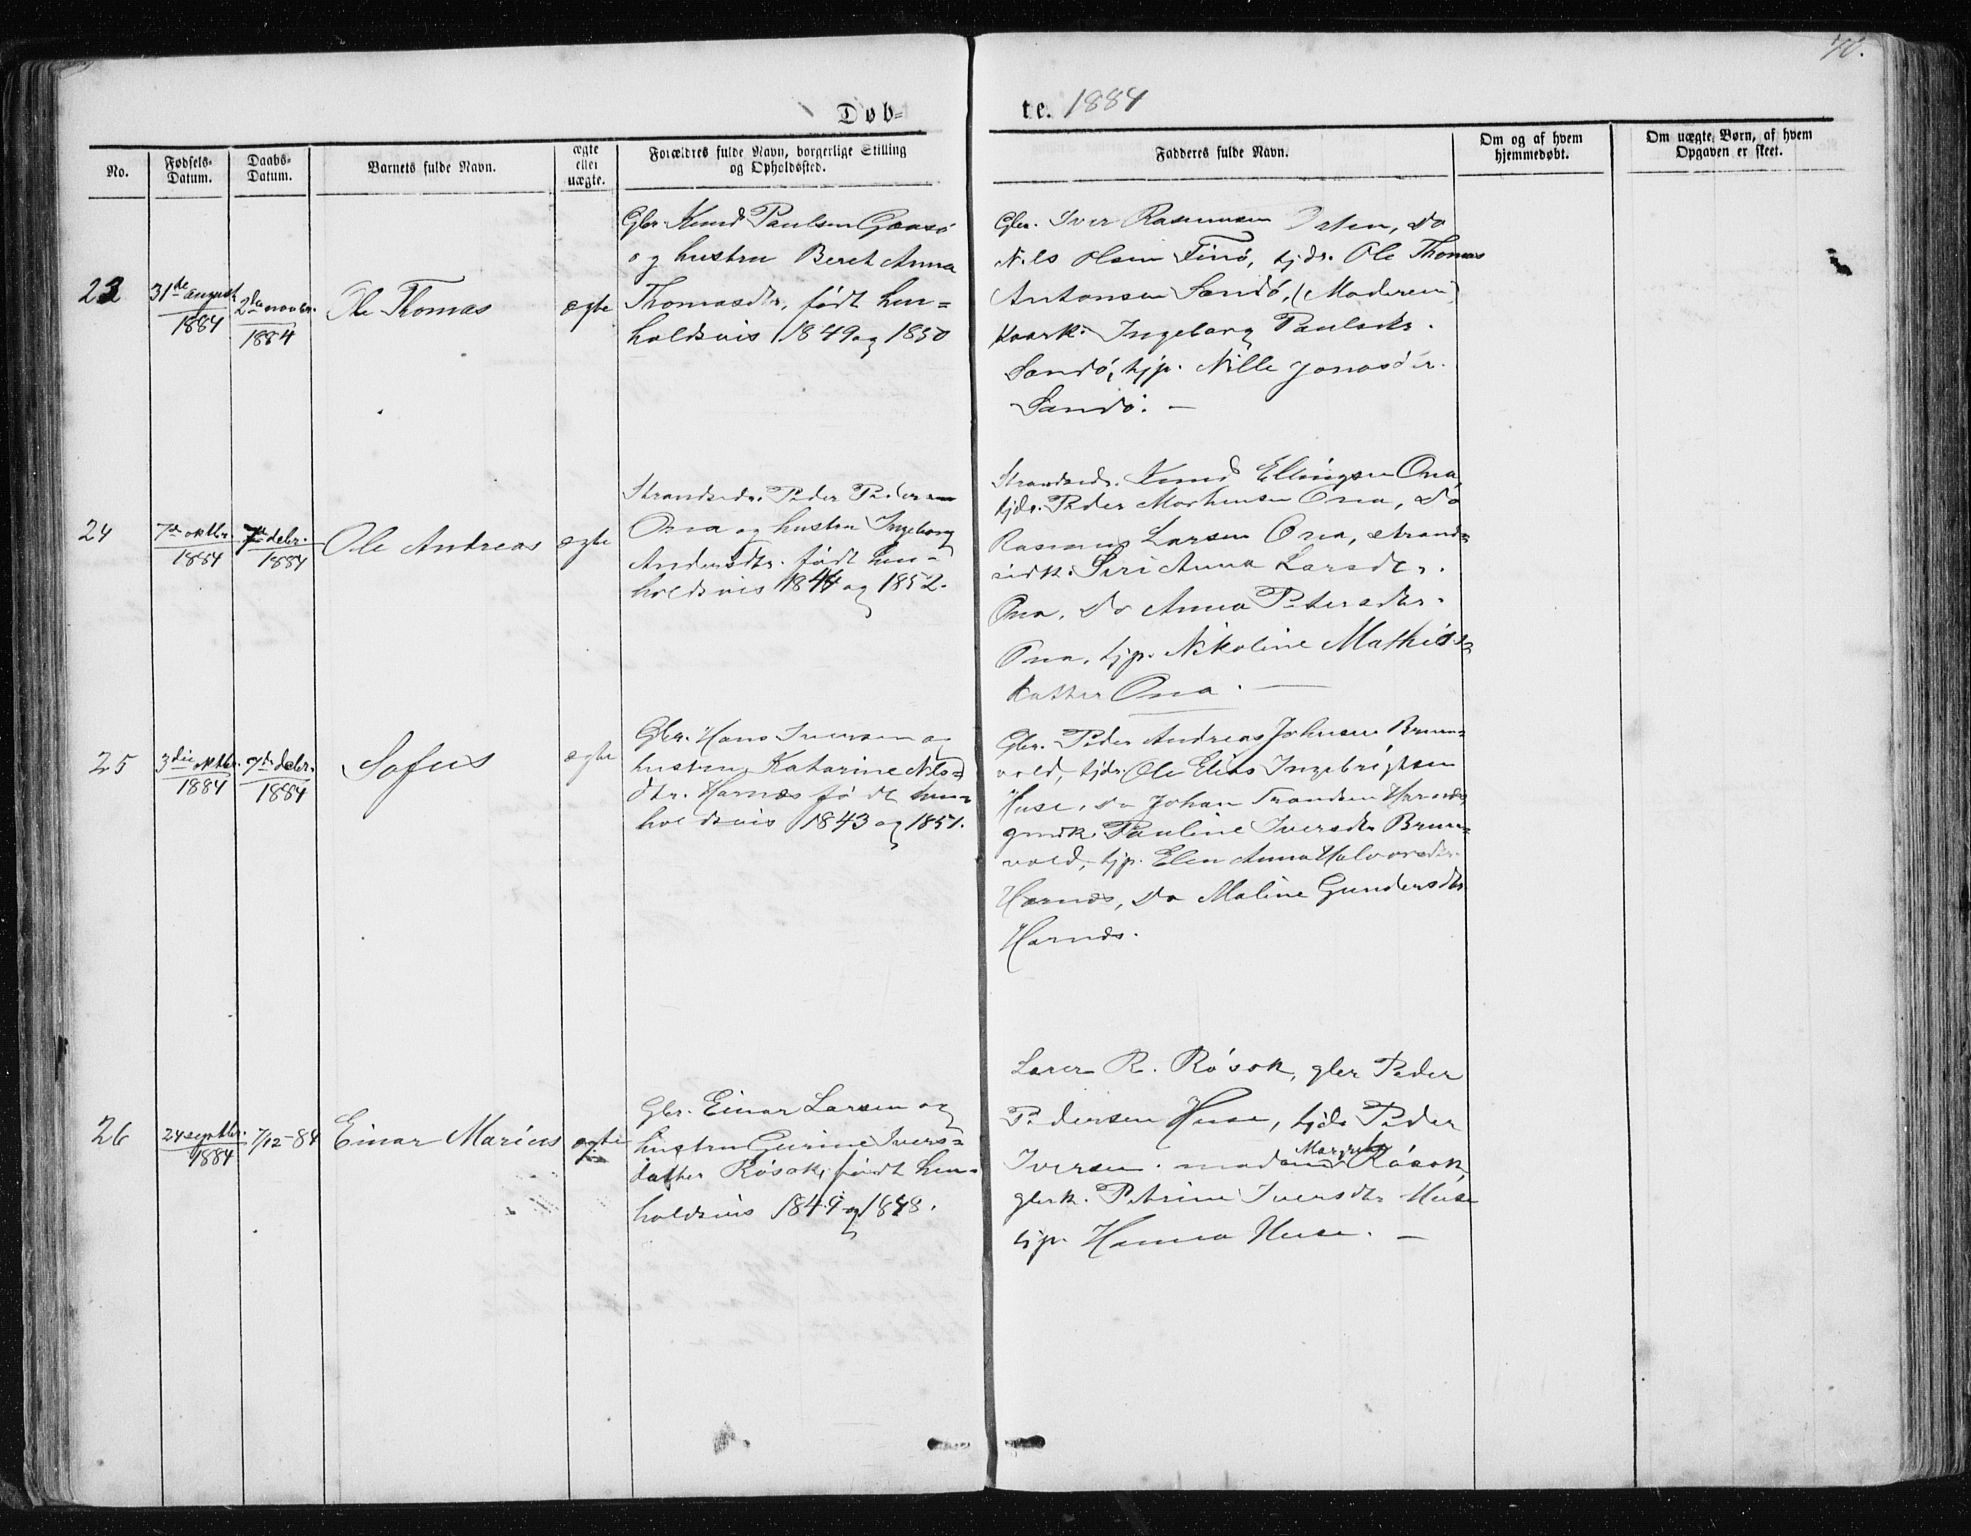 70.
Døb-
te. 1884
No.
Fødsels-
Datum.
Daabs-
Datum.
Barnets fulde Navn.
ægte
eller
uægte.
Forældres fulde Navn, borgerlige Stilling
og Opholdssted.
Fadderes fulde Navn.
Om og af hvem
hjemmedøbt.
Om uægte Børn, af hvem
Opgaven er skeet.
23
31te august
1884
2den novbr.
1884
Ole Thomas
ægte
Gbr. Knud Paulsen Gaasø
og hustru Beret Anna
Thomasdtr. født hen=
holdsvis 1849 og 1850
Gbr. Iver Rasmussen Orten, do
Nils Olsen Finø, tjdr. Ole Thomas
Antonsen Sandø, (Moderen)
kaark. Ingeborg Paulsdtr.
Sandø, tjp. Nille Jonasdtr.
Sandø. —
24
7de oktbr.
1884
7de debr.
1884
Ole Andreas
ægte
Strandsidr. Peder Pedersen
Ona og hustru Ingeborg
Andersdtr. født hen=
holdsvis 1844 og 1852.
Strandsidr. Knud Ellingsen Ona,
tjdr. Peder Mortensen Ona, do
Rasmus Larsen Ona, strand=
sidk. Siri Anna Larsdtr.
Ona, do Anna Petersdtr.
Ona, tjp. Nikoline Mathias
datter Ona. —
25
3die oktbr.
1884
7de debr.
1884
Sofus
ægte
Gbr. Hans Iversen og
hustru Katarine Nils=
dtr. Harnæs født hen=
holdsvis 1843 og 1857.
Gbr. Peder Andreas Johnsen Bruun=
vold, tjdr. Ole Elias Ingebrigtsen
Huse, do Johan Trondsen Harnæs,
gmdk. Pauline Iversdtr Bruun=
vold, tjp. Elen Anna Halvorsdtr.
Harnæs, do Maline Gundersdtr
Harnæs.
26
24 septbr.
1884
7/12-84
Einar Marius
ægte
Gbr. Einar Larsen og
hustru Gurine Ivers=
datter Røsok, født hen=
holdsvis 1849 og 1848.
Lærer R. Røsok, gbr Peder
Pedersen Huse, tjdr Peder
Iversen. madam Margrete Røsok,
gbrk. Petrine Iversdtr Huse
tjp. Hanna Huse. —